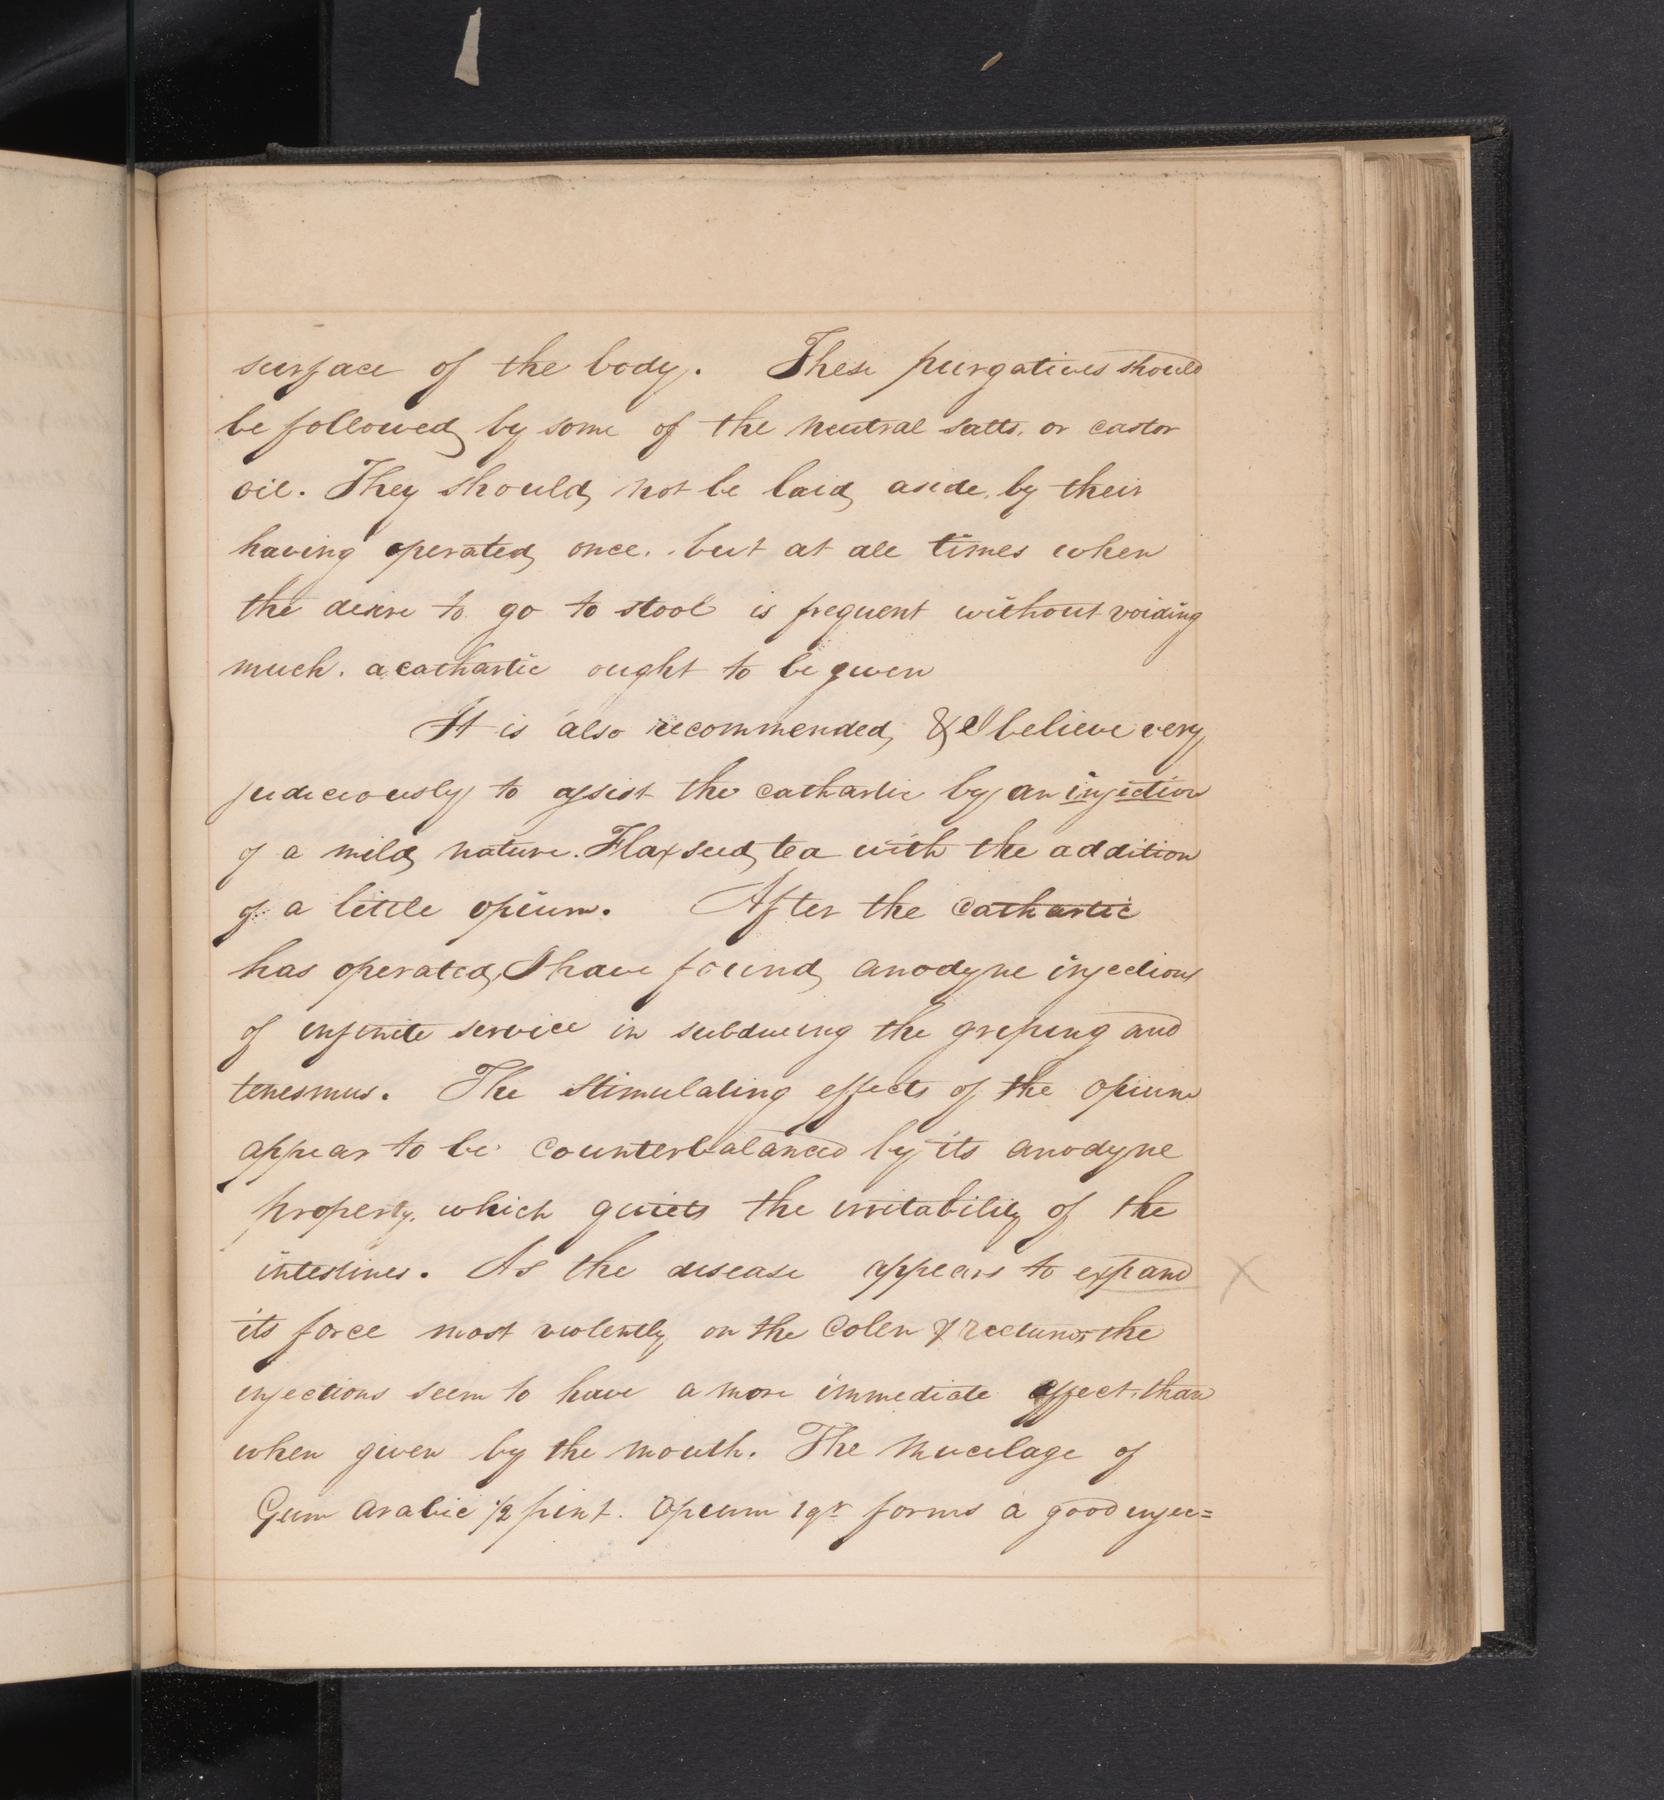 surface of the body. These purgatives should
be followed by some of the neutral salts, or castor
oil. They should not be laid aside, by their
having operated once. but at all times when
the desire to go to stool is frequent without voiding
much. a cathartic ought to be given
It is also recommended, & I believe very
judiciously to assist the cathartic by an injection
of a mild nature. Flaxseed tea with the addition
of a little opium. After the cathartic
has operated, I have found anodyne injections
of infinite service in subdueing the griping and
tenesmus. The stimulating effects of the opium
appear to be counterbalanced by its anodyne
property, which quiets the irritability of the
intestines. As the disease appears to expand X
its force most violently on the Colen & rectum, the
injections seem to have a more immediate effect, than
when given by the mouth. The Mucilage of
Gum arabic 1/2 pint. Opium 1 gr forms a good injec=